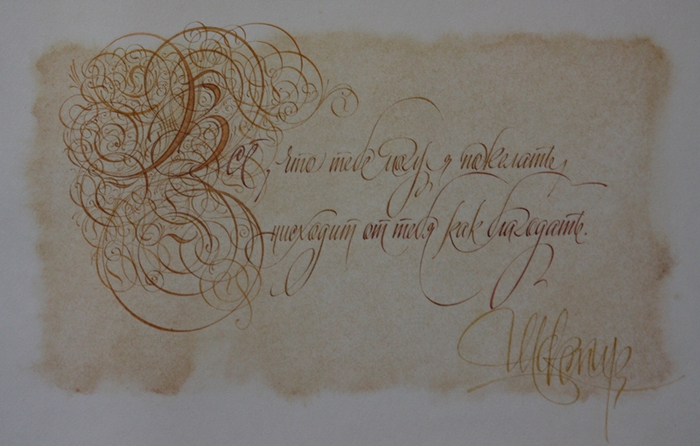 Всё, что тебе могу я пожелать,
Нисходит от тебя как благодать.